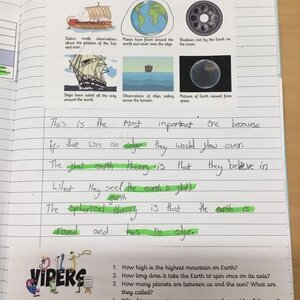 Sailors made observations about the position of the Sun and stars.
Planes have flown around the world and never seen the edge.
Shadows cast by the Earth on the moon.
Ships have sailed all the way around the world.
Observations of ships sailing across the horizon.
Pictures of Earth viewed from space
This is the most important one because
if ther was an edge they would flow over.
The flat earth theory is that they believe in
What they see/ the earth is flat/
earth
The spherical theory is that the earth is
round and has no edge.
VIPERS
1. How high is the highest mountain on Earth?
2. How long does it take the Earth to spin once on its axis?
3. How many planets are between us and the sun? What are
they called?